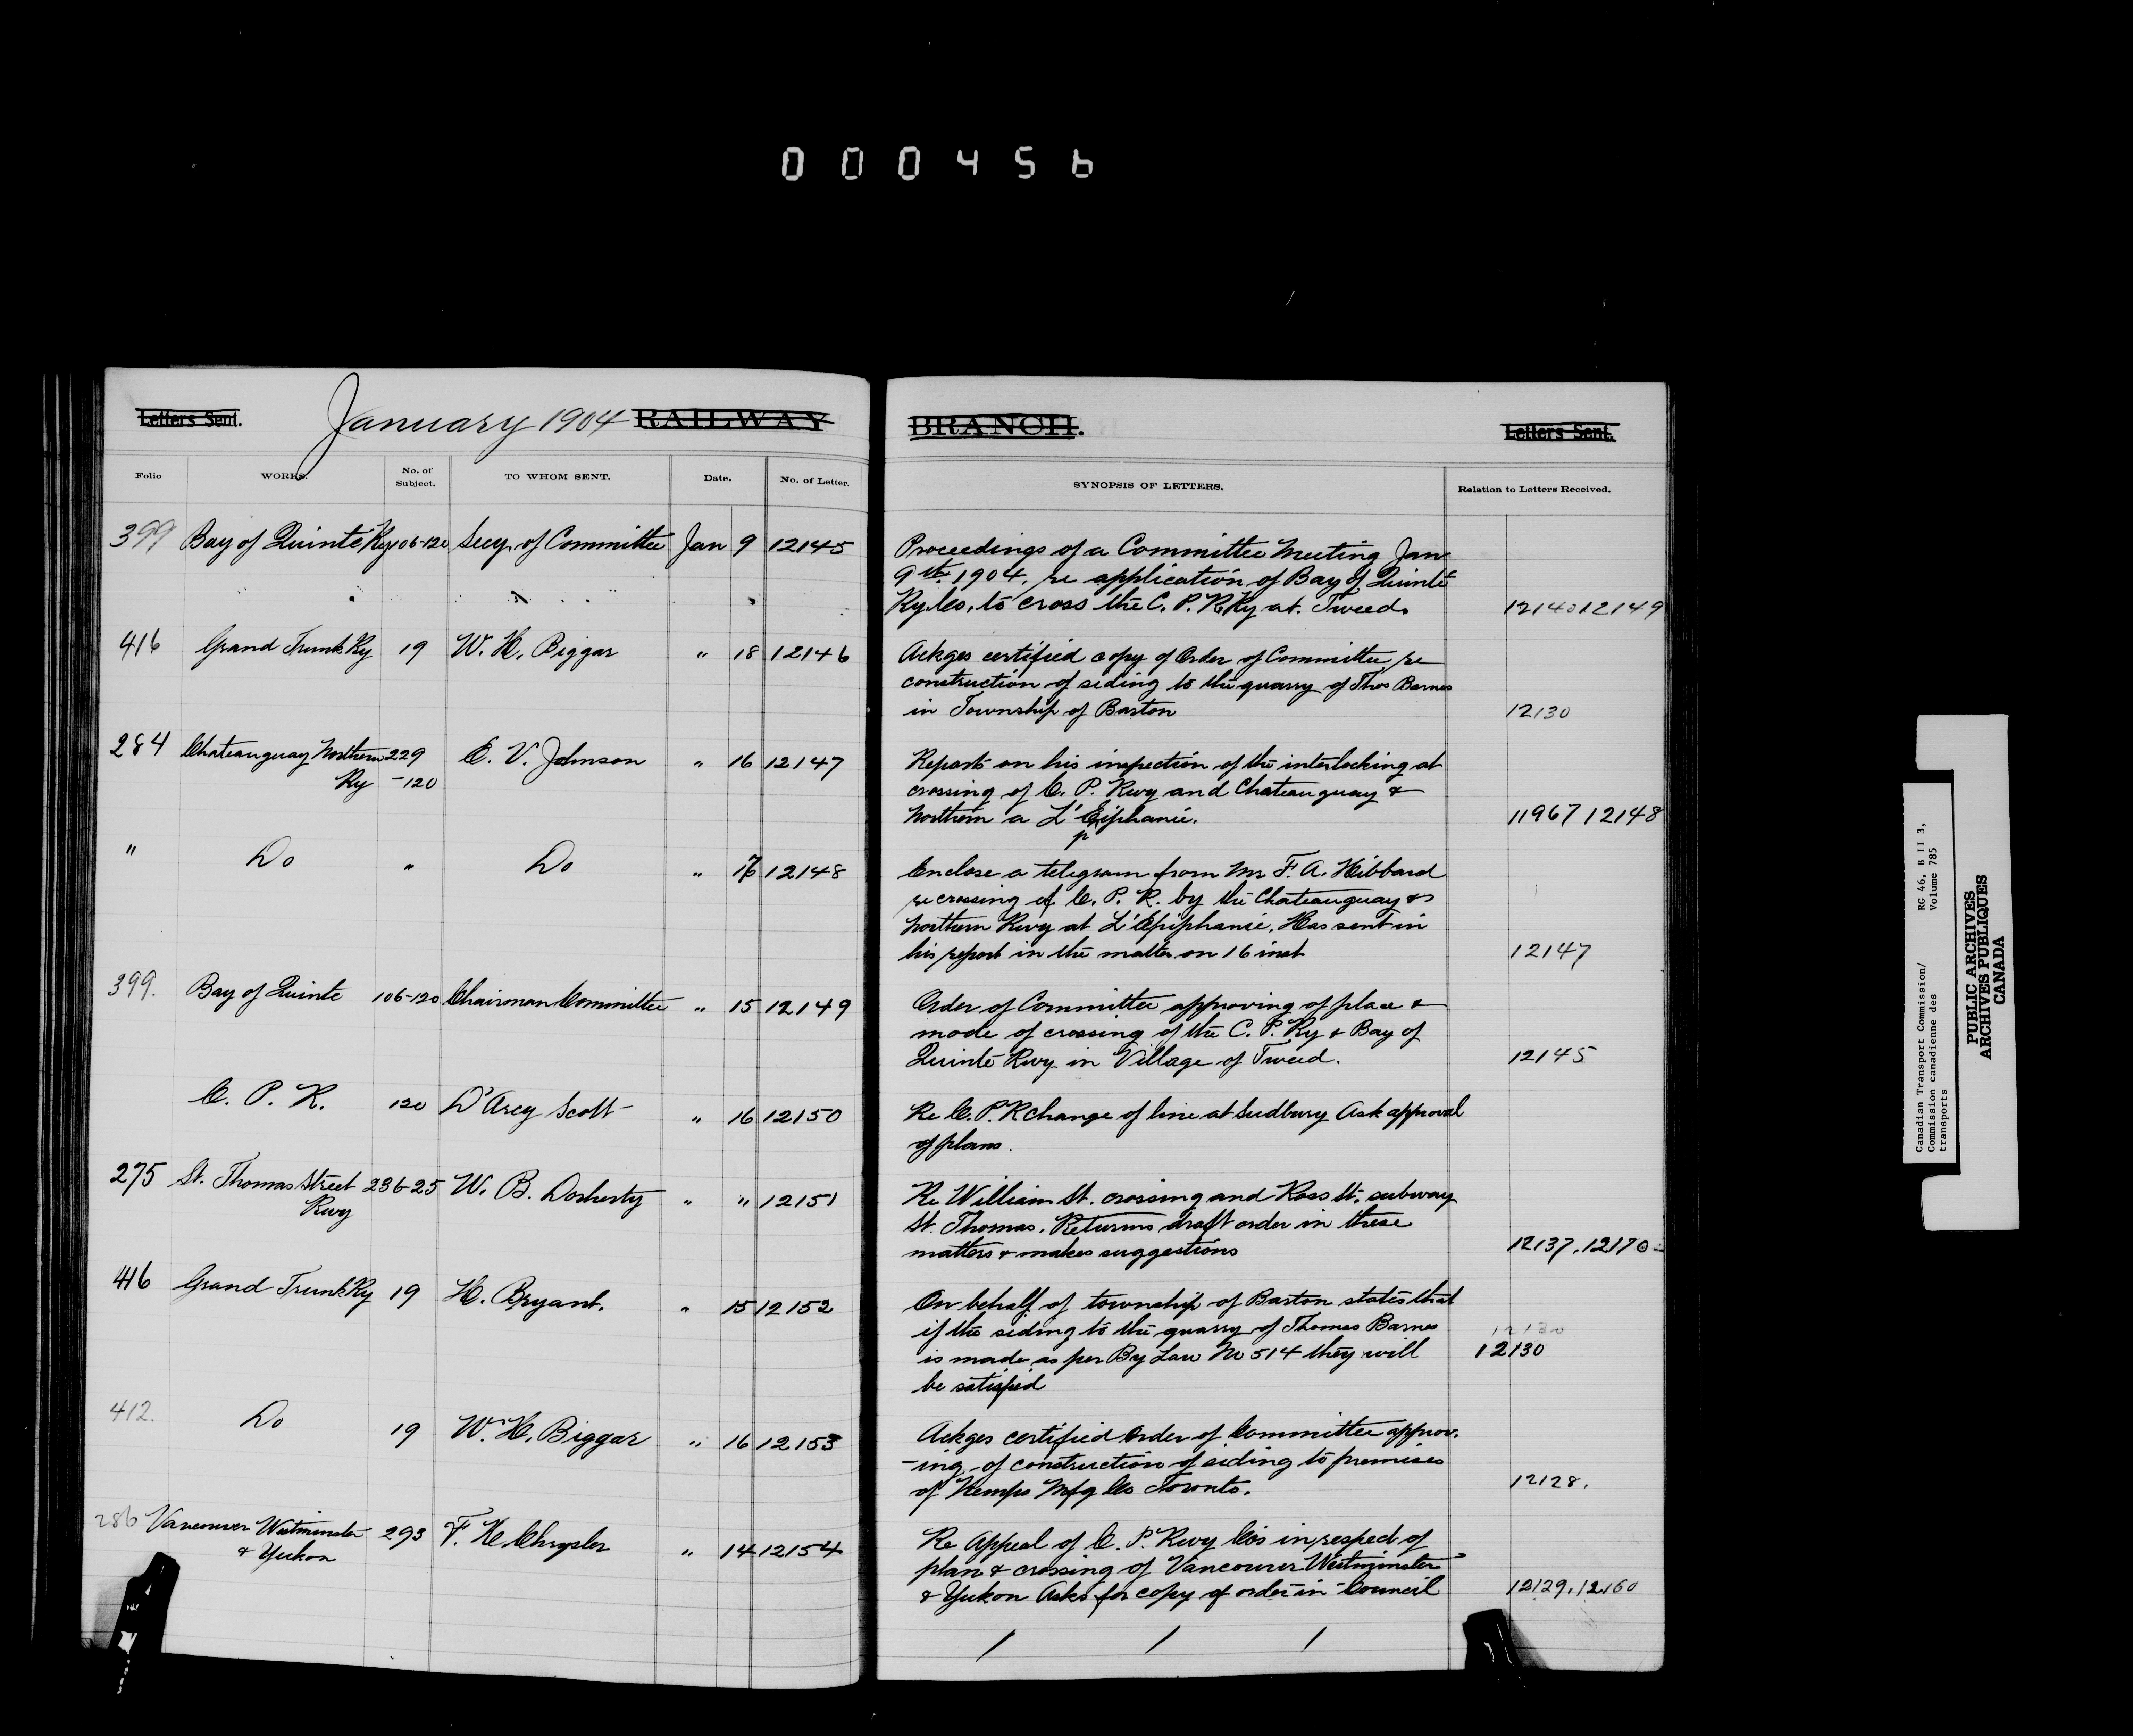 000456
Letters Sent. January 1904 RAILWAY
BRANCH. Letters Sent.
Folio WORKS. No. of Subject. TO WHOM SENT. Date. No. of Letter.
SYNOPSIS OF LETTERS. Relation to Letters Received.
399 Bay of Quinte Ry 106-120 Secy. of Committee Jan 9 12145
Proceedings of a Committee Meeting Jan
9th 1904, re application of Bay of Quinte
Ry Co. to cross the C. P. R Ry at Tweed. 12140 12149
416 Grand Trunk Ry 19 W. H. Biggar " 18 12146
Ackges certified copy of Order of Committee, re
construction of siding to the quarry of Thos Barnes
in Township of Barton 12130
284 Chateauguay Northern 229 E. V. Johnson " 16 12147
Ry -120
Reports on his inspection of the interlocking at
crossing of C. P. Rwy and Chateauguay &
Northern a L'Epiphanie. 11967 12148
" Do " Do " 17 12148
Enclose a telegram from Mr F. A. Hibbard
re crossing of C. P. R. by the Chateauguay &
Northern Rwy at L'Epiphanie. Has sent in
his report in the matter on 16 inst 12147
399. Bay of Quinte 106-120 Chairman Committee " 15 12149
Order of Committee approving of place &
mode of crossing of the C. P. Ry & Bay of
Quinte Rwy in Village of Tweed. 12145
C. P. R. 120 D'Arcy Scott " 16 12150
Re C. P. R change of line at Sudbury Ask approval
of plans.
275 St. Thomas Street 236-25 W. B. Doherty " " 12151
Rwy
Re William St. crossing and Ross St. subway
St. Thomas. Returns draft order in these
matters & makes suggestions 12137, 12170
416 Grand Trunk Ry 19 H. Bryant. " 15 12152
On behalf of township of Barton states that
if the siding to the quarry of Thomas Barnes 12130
is made as per By Law No 514 they will 12130
be satisfied
412. Do 19 W. H. Biggar " 16 12153
Ackges certified Order of Committee approv-
-ing of construction of siding to premises
of Kemps Mfg Co Toronto. 12128.
286 Vancouver Westminster 293 F. H Chrysler " 14 12154
& Yukon
Re Appeal of C. P. Rwy Co's in respect of
plan & crossing of Vancouver Westminster
& Yukon Asks for copy of order-in-Council 12129, 12160
Canadian Transport Commission/ RG 46, B II 3,
Commission canadienne des Volume 785
transports
PUBLIC ARCHIVES
ARCHIVES PUBLIQUES
CANADA